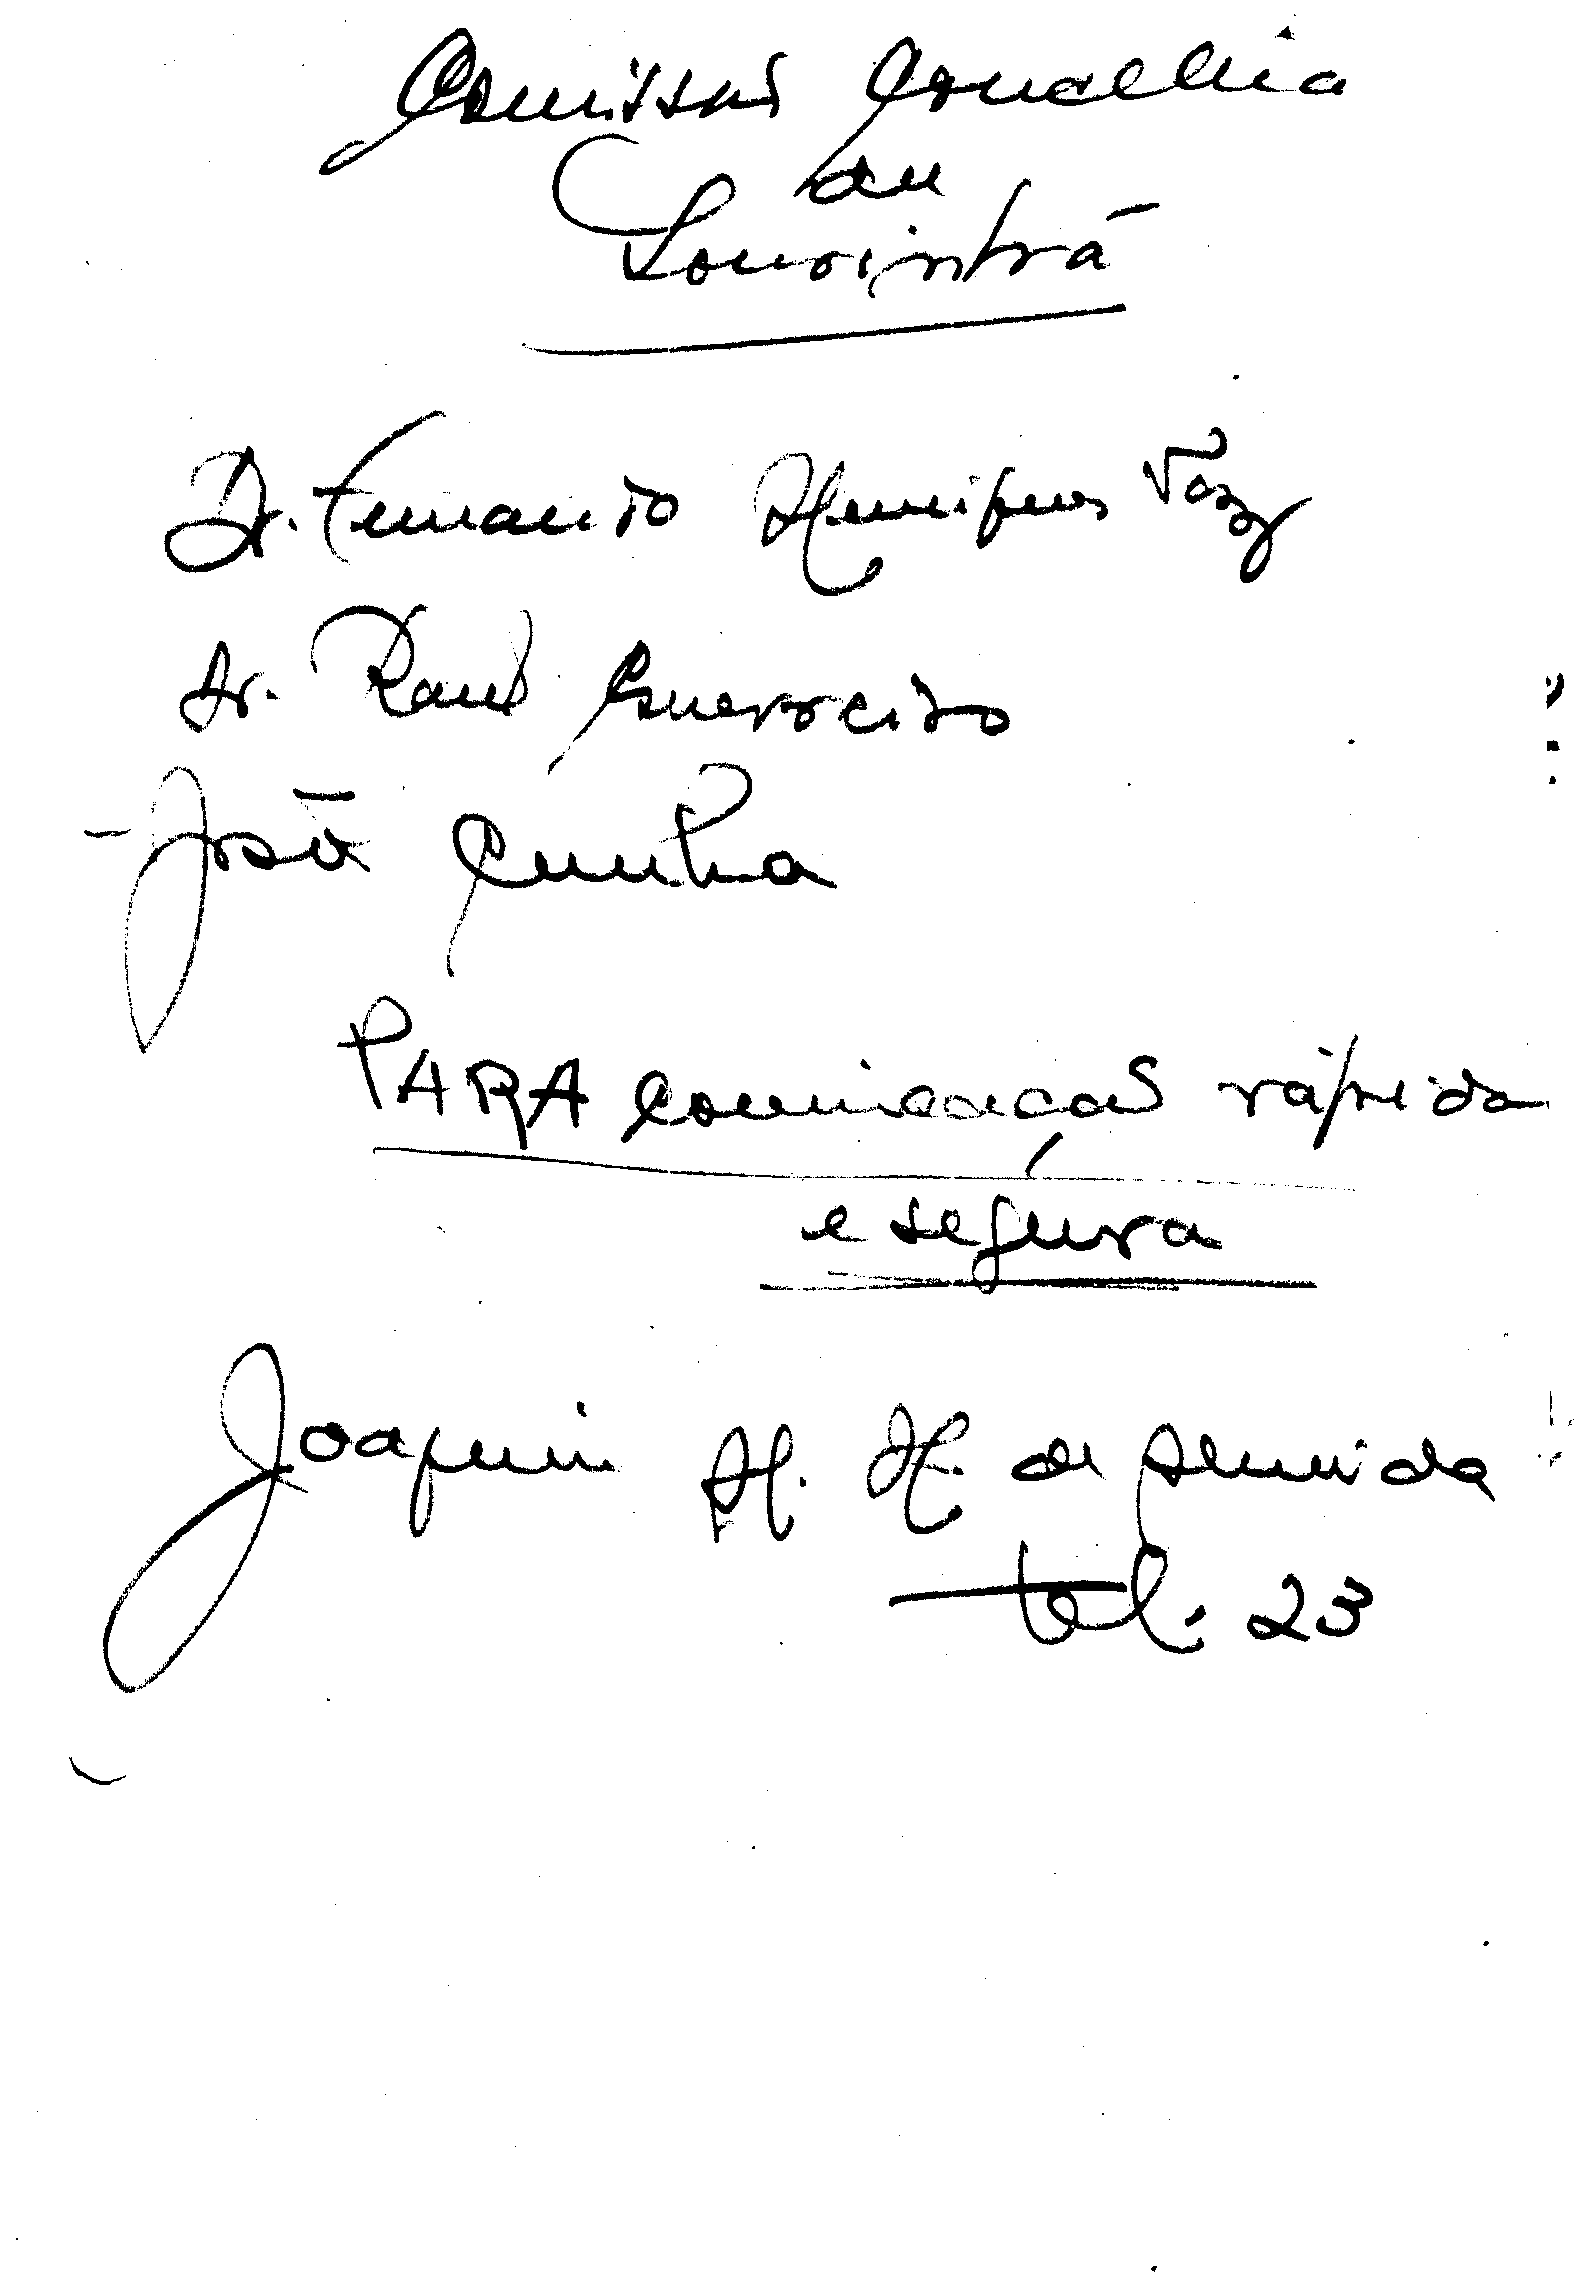 Comissão Concelhia
da
Lourinhã
Dr. Fernando Henriques Vaz
Dr. Raul Guerreiro
João Cunha
PARA comunicação rápida
e segura
Joaquim H. H. de Almeida
tel. 23